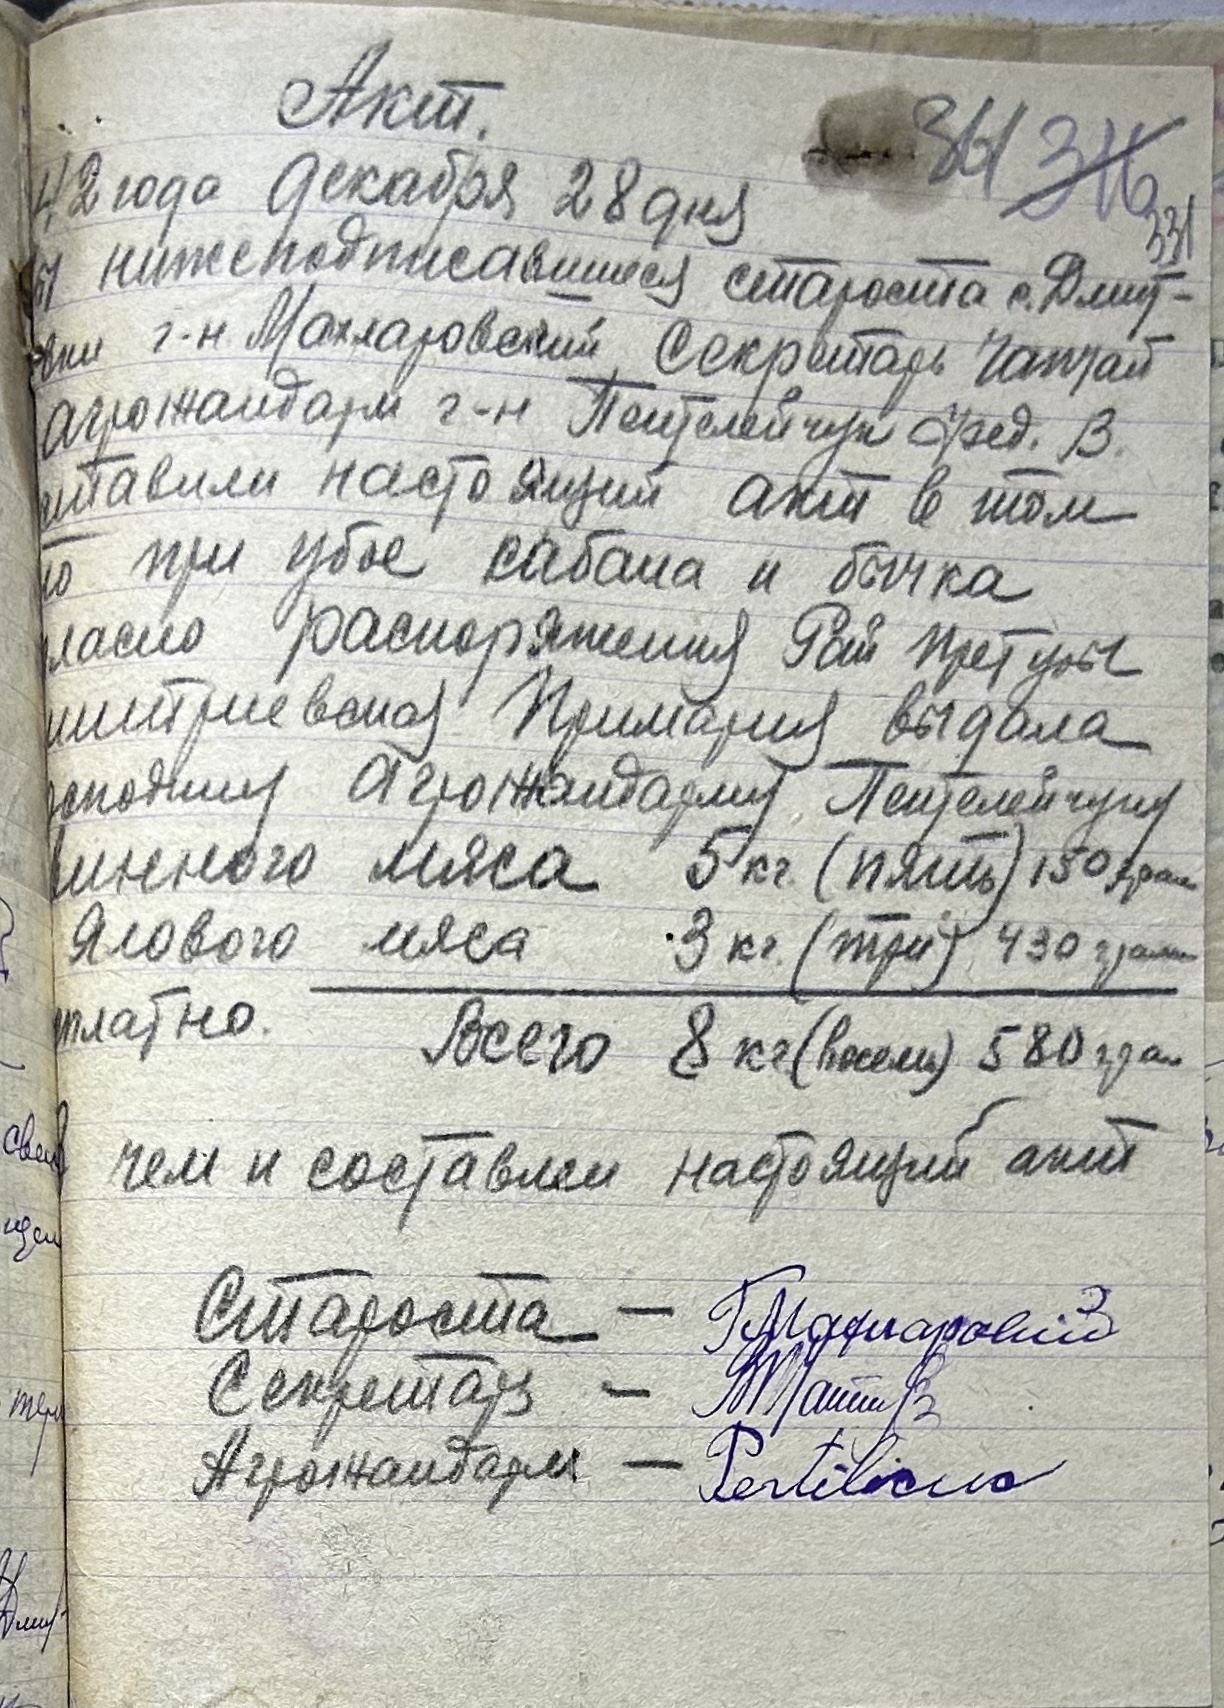 Акт.
361 316
331
42 года декабря 28 дня
нижеподписавшиеся староста с. Дмит-
вки г-н Махларовский Секретарь
агрожандарм г-н Пентелейчук Фед. В.
ставили настоящий акт в том
то при убое кабана и бычка
гласно распоряжения Рай претуры
митриевская Примария выдала
осподину Агрожандарму Пентелейчуку
винного мяса 5 кг. (пять) 150 грам
Ялового мяса 3 кг. (три) 430 грамм
платно.
Всего 8 кг (восем) 580 грам
чем и составлен настоящий акт
Староста —
Секретарь —
Агрожандарм —